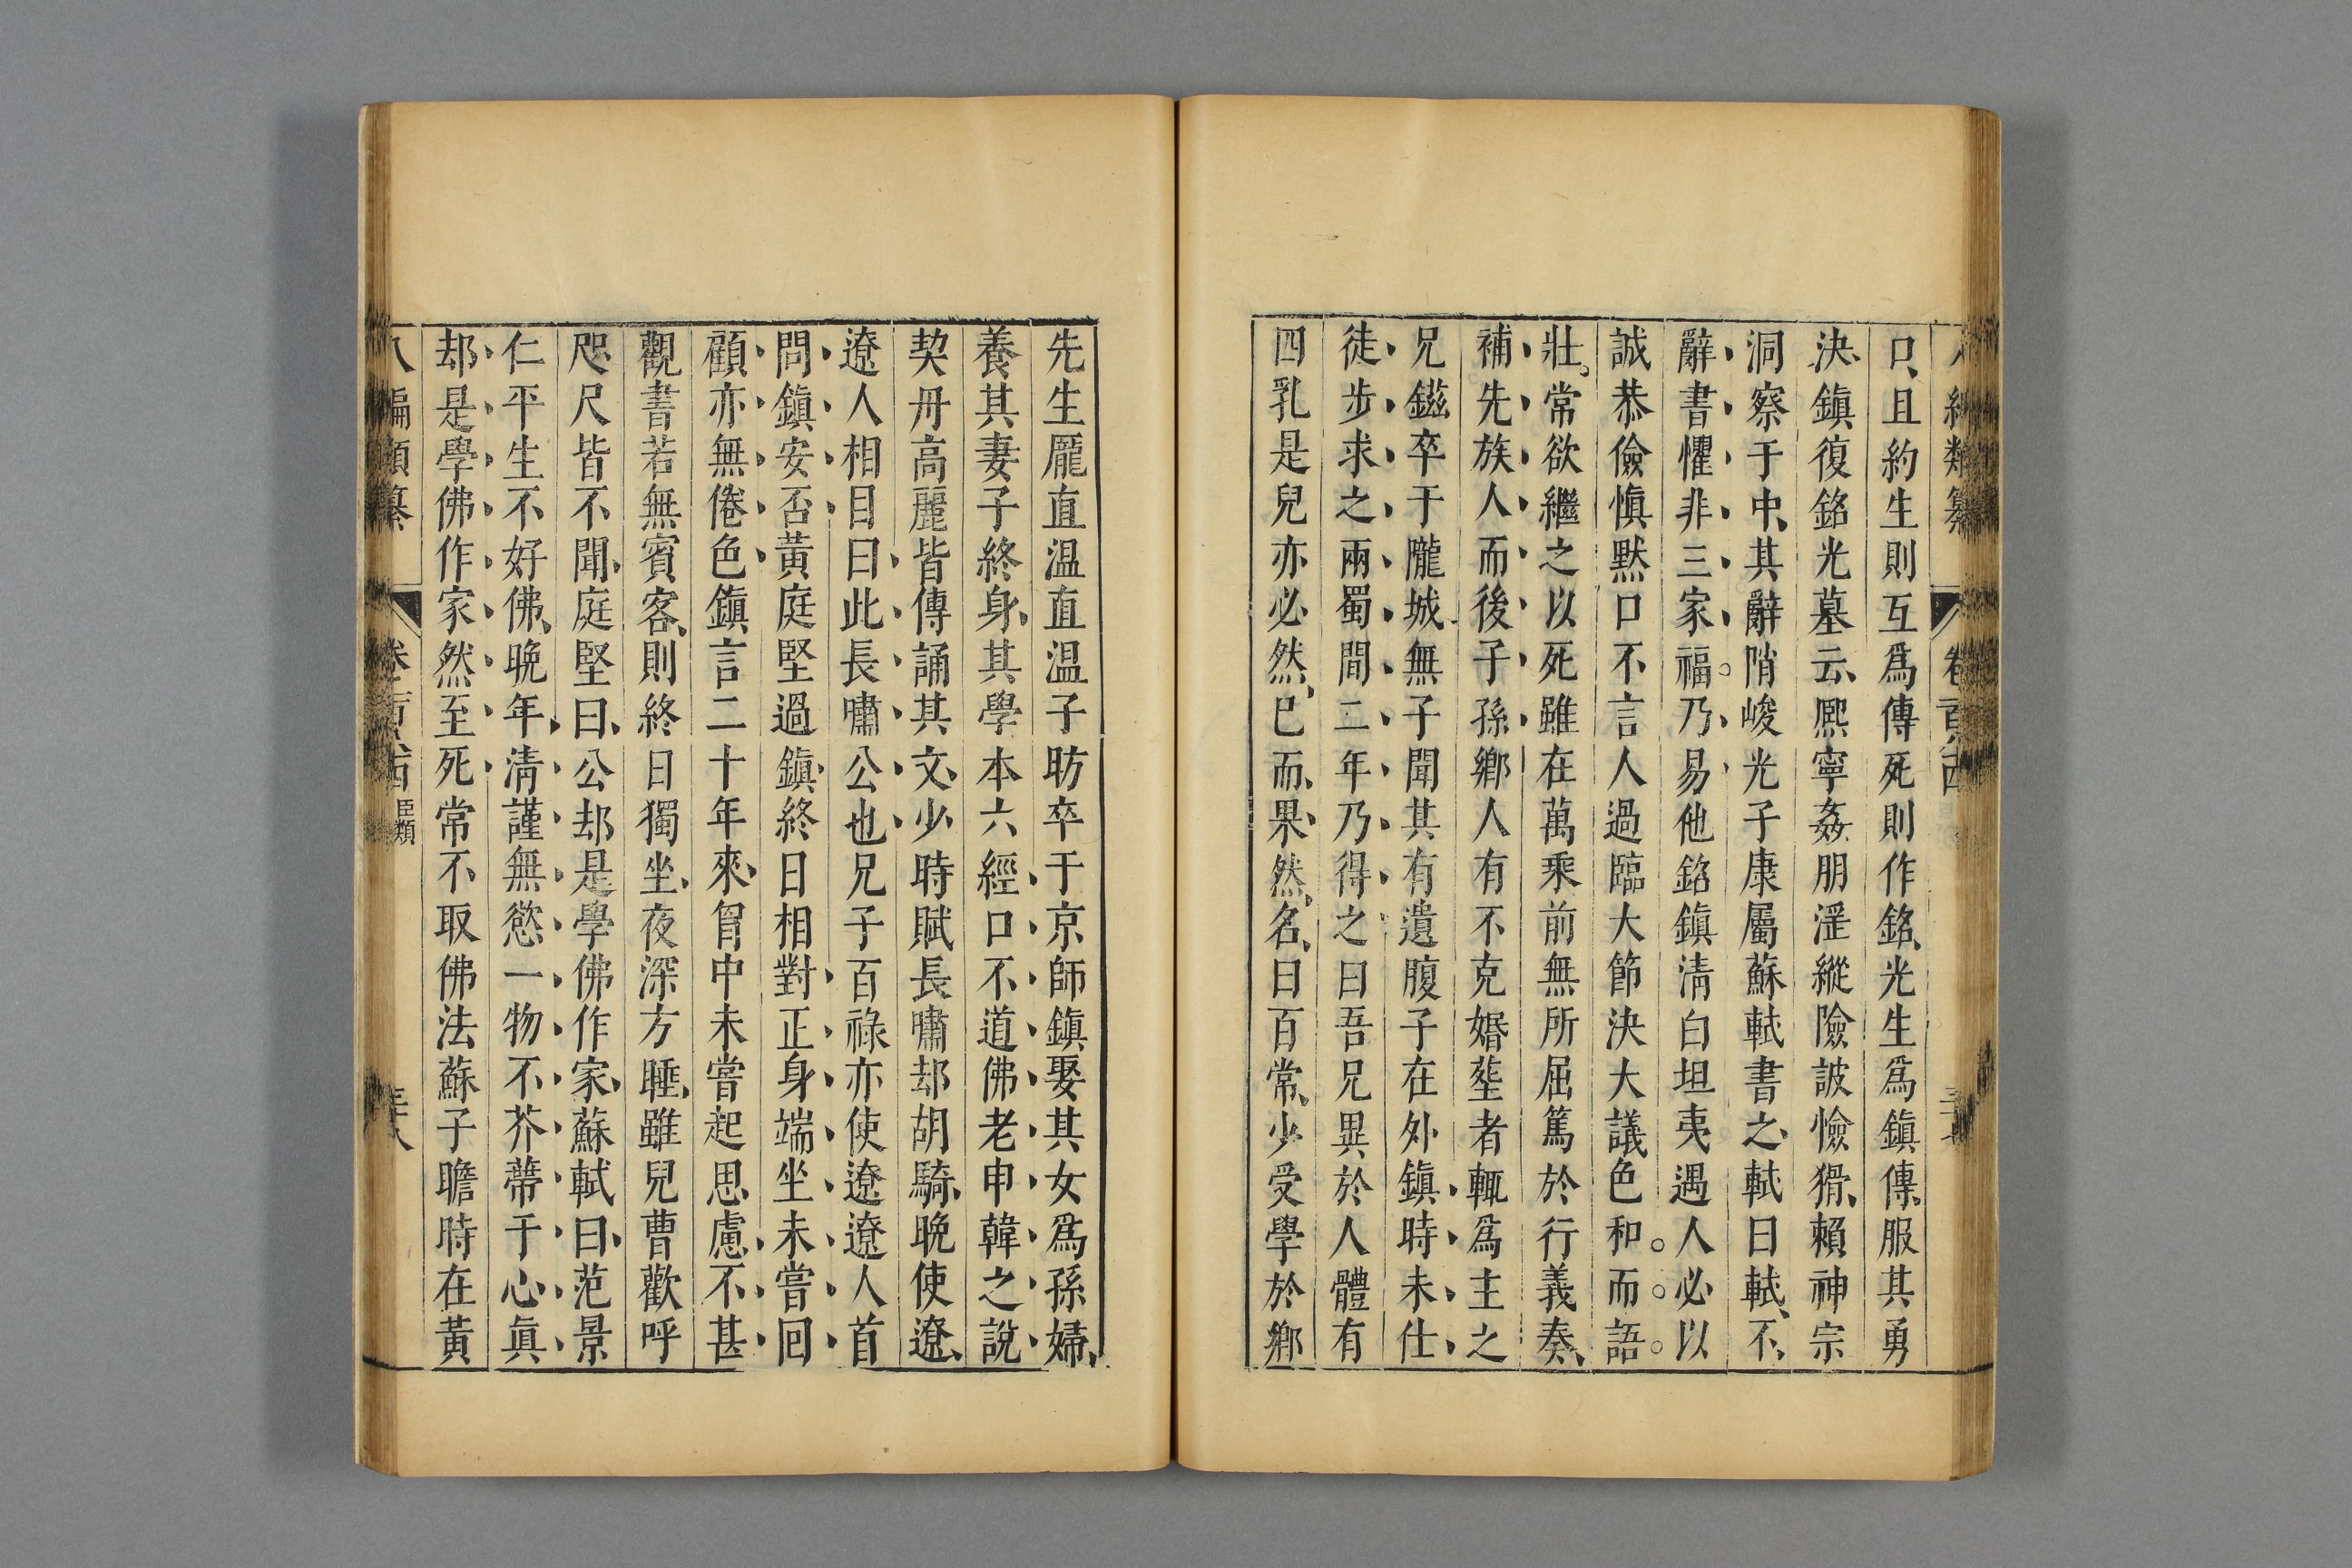 編類纂 卷百
口且約生則互爲傳死則作銘光生爲鎮傳服其勇
決鎮復銘光墓云熈寧姦朋淫縱險詖憸猾賴神宗
洞察于中其辭陗峻光子康屬蘇軾書之軾曰軾不
辭書懼非三家福乃易他銘鎮清白坦夷遇人必以
誠恭儉愼默口不言人過臨大節決大議色和而語
壯常欲繼之以死雖在萬乘前無所屈篤於行義奏
補先族人而後子孫鄉人有不克婚塟者輒爲主之
兄鎡卒于隴城無子聞其有遺腹子在外鎮時未仕
徒步求之兩蜀間二年乃得之曰吾兄異於人體有
四乳是兒亦必然已而果然名曰百常少受學於鄉
先生龐直温直温子昉卒于京師鎮娶其女爲孫婦
養其妻子終身其學本六經口不道佛老申韓之說
契丹高麗皆傳誦其文少時賦長嘯却胡騎晩使遼
遼人相目曰此長嘯公也兄子百祿亦使遼遼人首
問鎮安否黃庭堅過鎮終日相對正身端坐未嘗回
顧亦無倦色鎮言二十年來胷中未嘗起思慮不甚
觀書若無賓客則終日獨坐夜深方睡雖兒曹歡呼
咫尺皆不聞庭堅曰公却是學佛作家蘇軾曰范景
仁平生不好佛晩年清謹無慾一物不芥蔕于心眞
却是學佛作家然至死常不取佛法蘇子瞻時在黃
八編類纂 卷百 臣類 三十八